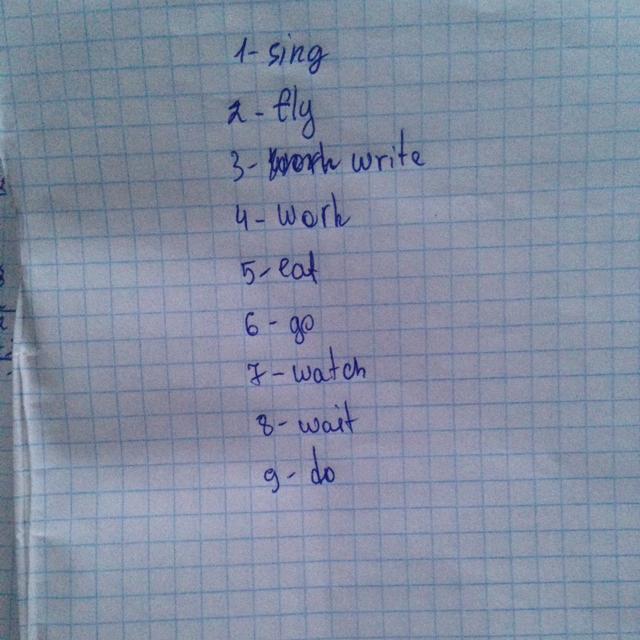 1- sing
2 - fly
3 - work write
4 - work
5 - eat
6 - go
7 - watch
8 - wait
9 - do